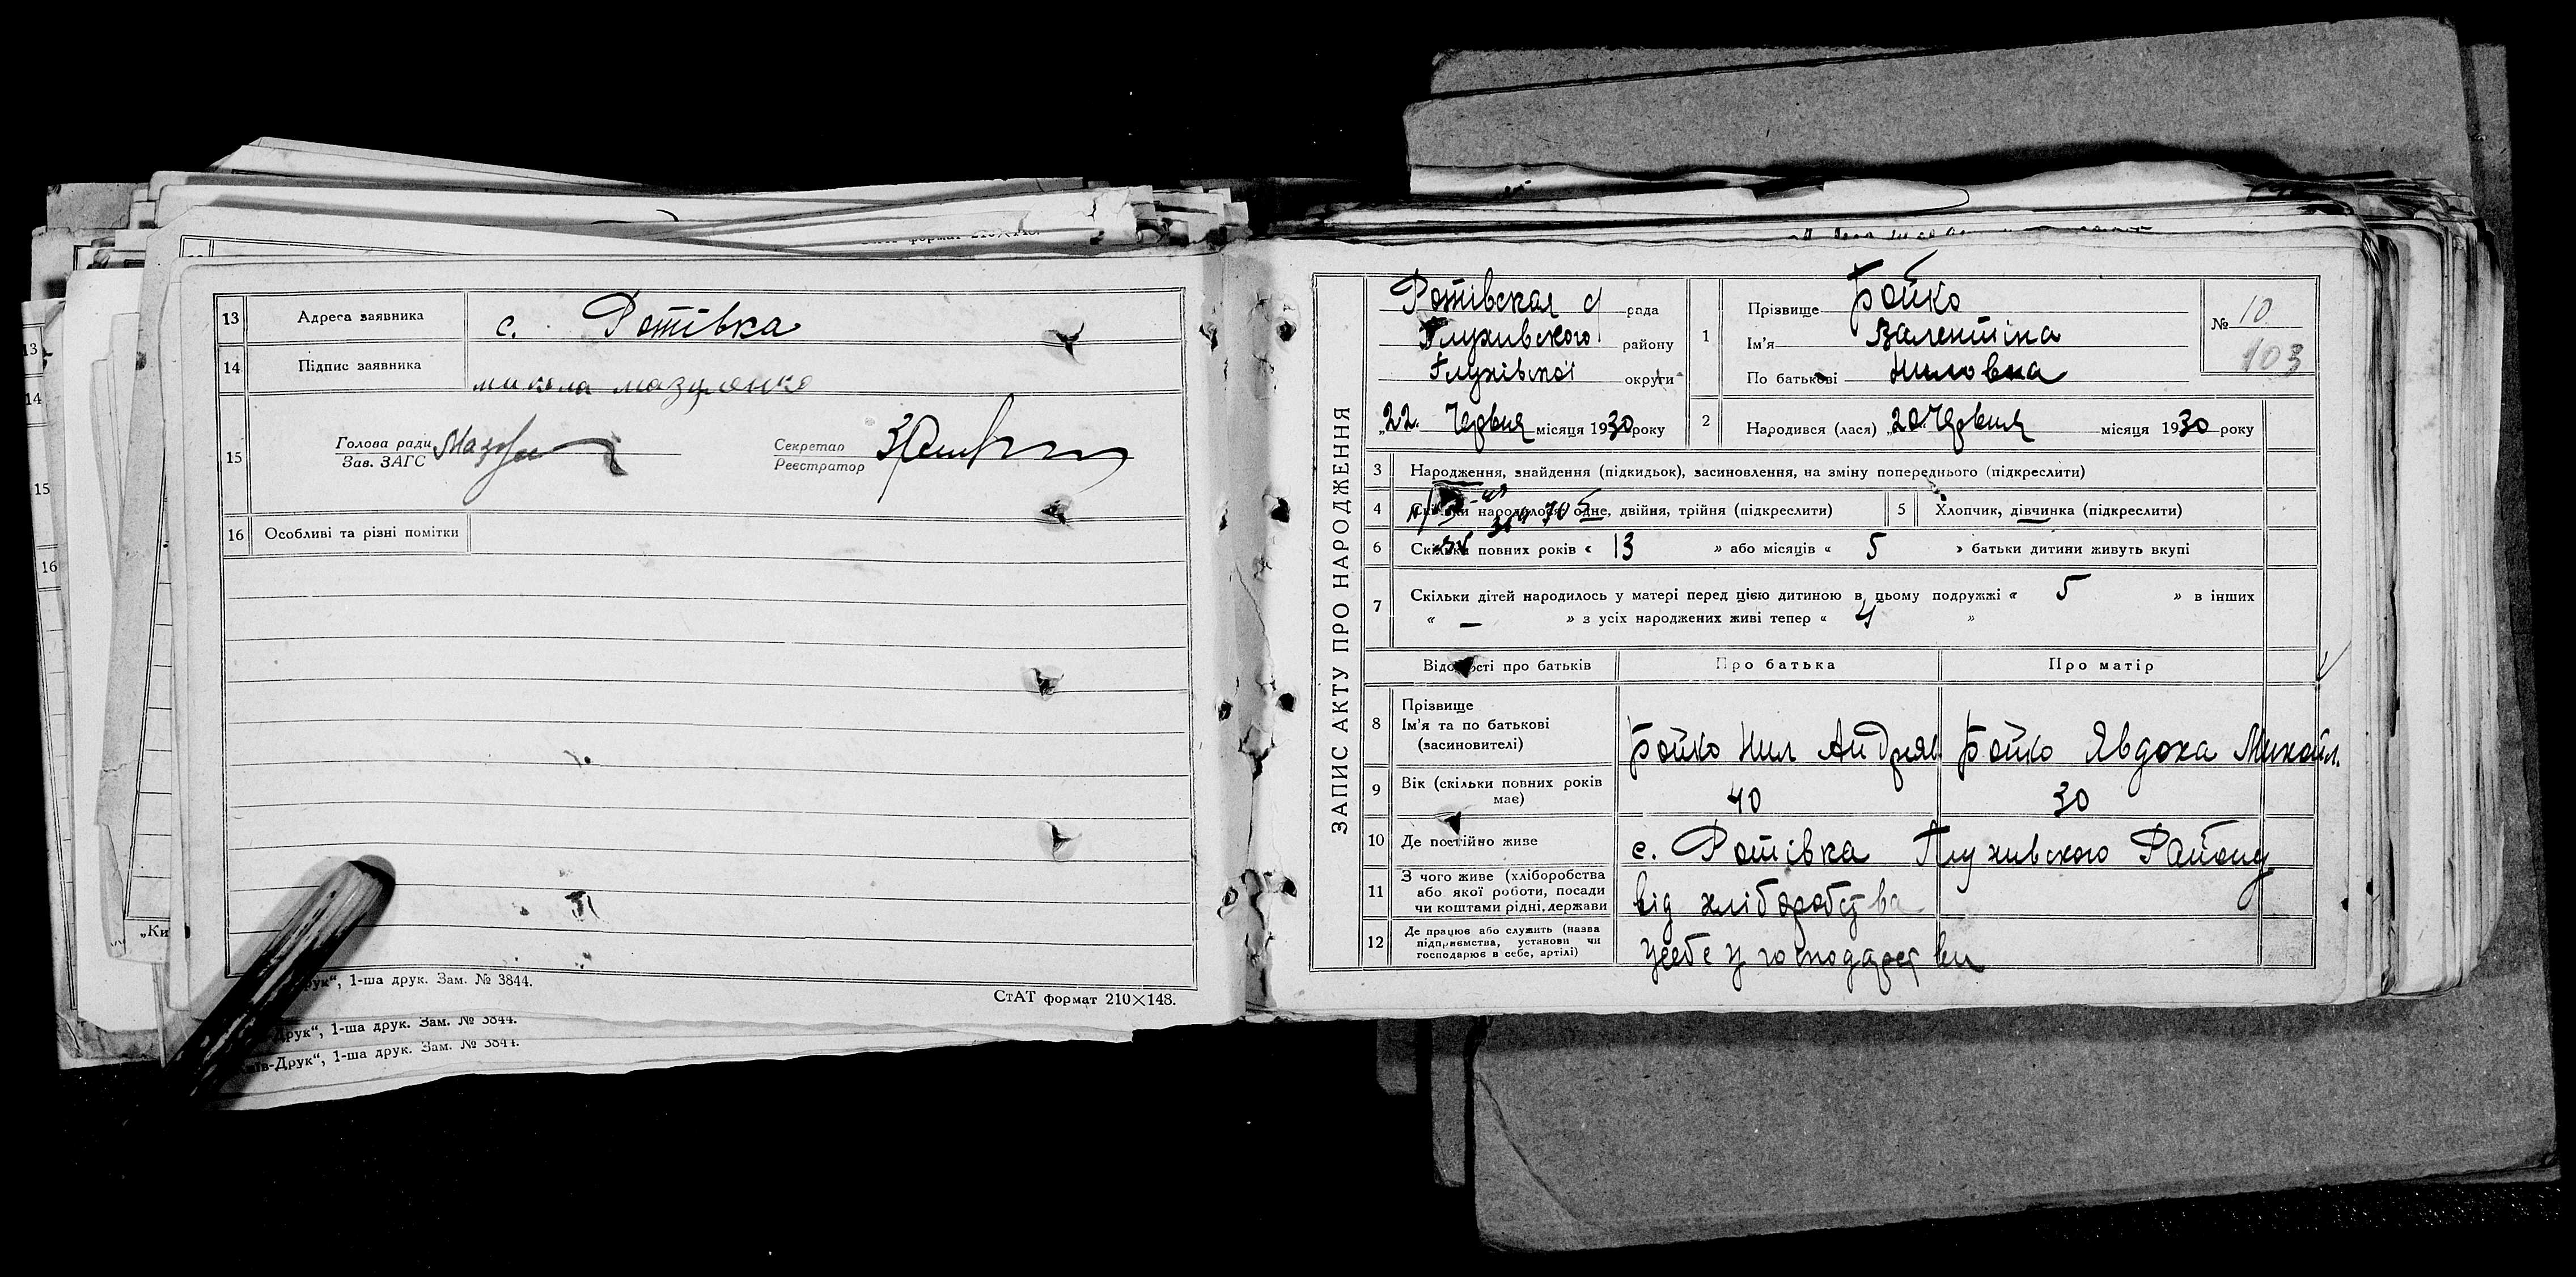 13 Адреса заявника с. Фотівка
14 Підпис заявника микола мазуренко
15 Голова ради
Зав. ЗАГС
Секретар
Реєстратор
16 Особливі та різні помітки
друк“, 1-ша друк. Зам. № 3844.
СтАТ формат 210×148.
-Друк“, 1-ша друк. Зам. № 3844.
їв-Друк“, 1-ша друк. Зам. № 3844.
„Ки
ЗАПИС АКТУ ПРО НАРОДЖЕННЯ
Фотівская с/ рада
Глухивского району
Глухівської округи
„22. Червня місяця 1930 року
1 Прізвище Бойко
Ім'я Валентіна
По батькові Ниловна
№ 10
103
2 Народився (лася) „20 Червня місяця 1930 року
3 Народження, знайдення (підкидьок), засиновлення, на зміну попереднього (підкреслити)
4 Скільки народилося: одне, двійня, трійня (підкреслити)
5 Хлопчик, дівчинка (підкреслити)
6 Скільки повних років « 13 » або місяців « 5 » батьки дитини живуть вкупі
7 Скільки дітей народилось у матері перед цією дитиною в цьому подружжі « 5 » в інших
« — » з усіх народжених живі тепер « 4 »
Відомості про батьків Про батька Про матір
8 Прізвище
Ім'я та по батькові
(засиновителі)
Бойко Нил Андрияв Бойко Явдоха Михайл.
9 Вік (скільки повних років
має)
40 30
10 Де постійно живе с. Фотівка Глухивского Району
11 З чого живе (хліборобства
або якої роботи, посади
чи коштами рідні, держави
від хліборобства
12 Де працює або служить (назва
підприємства, установи чи
господарює в себе, артілі)
усебе у господарстви